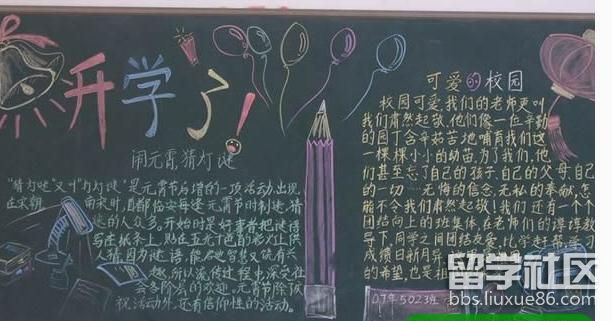 开学了!
闹元宵,猜灯谜
"猜灯谜"又叫"打灯谜"是元宵节后增的一项活动,出现
在宋朝。南宋时,首都临安每逢元宵节时制谜,猜
谜的人众多。开始时是好事者把谜语
写在纸条上,贴在五光十色的彩灯上供
人猜。因为谜语能启迪智慧又饶有兴
趣,所以流传过程中深受社
会各阶层的欢迎。元宵节除庆
祝活动外,还有信仰性的活动。
可爱的校园
校园可爱,我们的老师更叫
我们肃然起敬,他们像一位辛勤
的园丁含辛茹苦地哺育我们这
一棵棵小小的幼苗,为了我们,他
们甚至忘了自己的孩子,自己的父母,自己
的一切……无悔的信念,无私的奉献,怎
能不令我们肃然起敬!我们还有一个个
团结向上的班集体,在老师们的谆谆教
导下,同学之间团结友爱,比学赶帮,学习
成绩日新月异
的希望,也是祖
07年5023班
留学社区
bbs.liuxue86.com